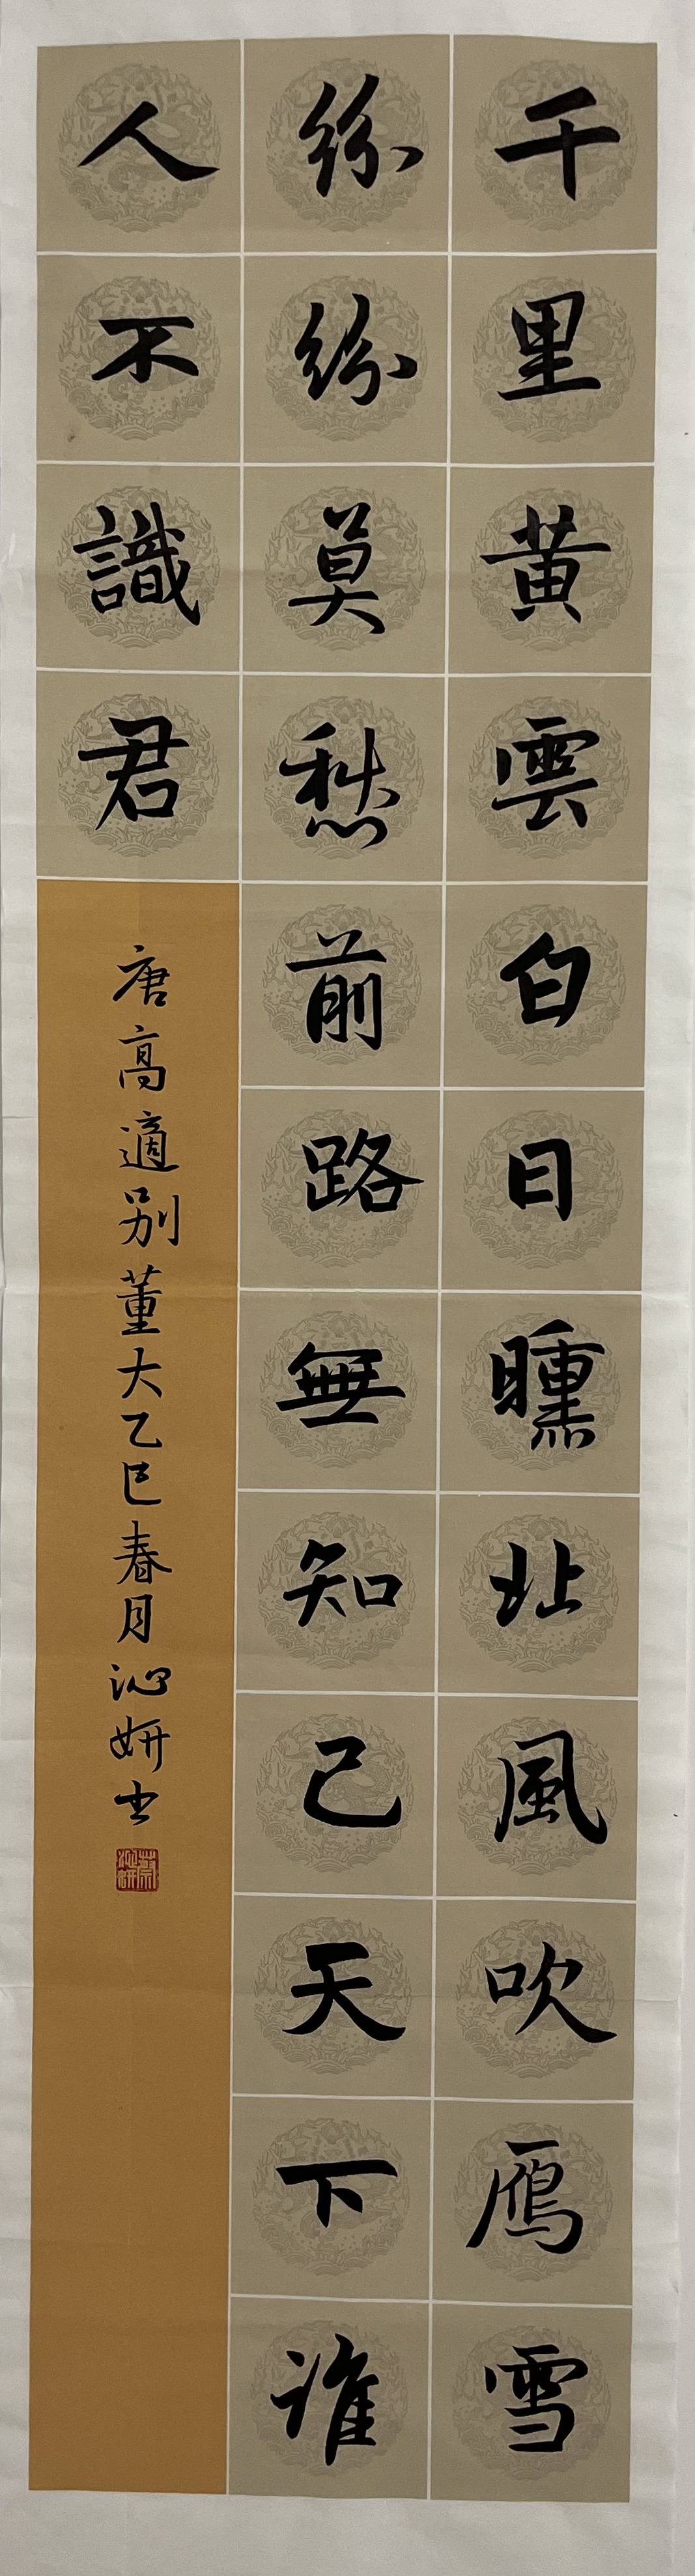 千里黄雲白日曛北風吹雁雪
紛紛莫愁前路無知己天下誰
人不識君
唐高適别董大乙巳春月沁妍书